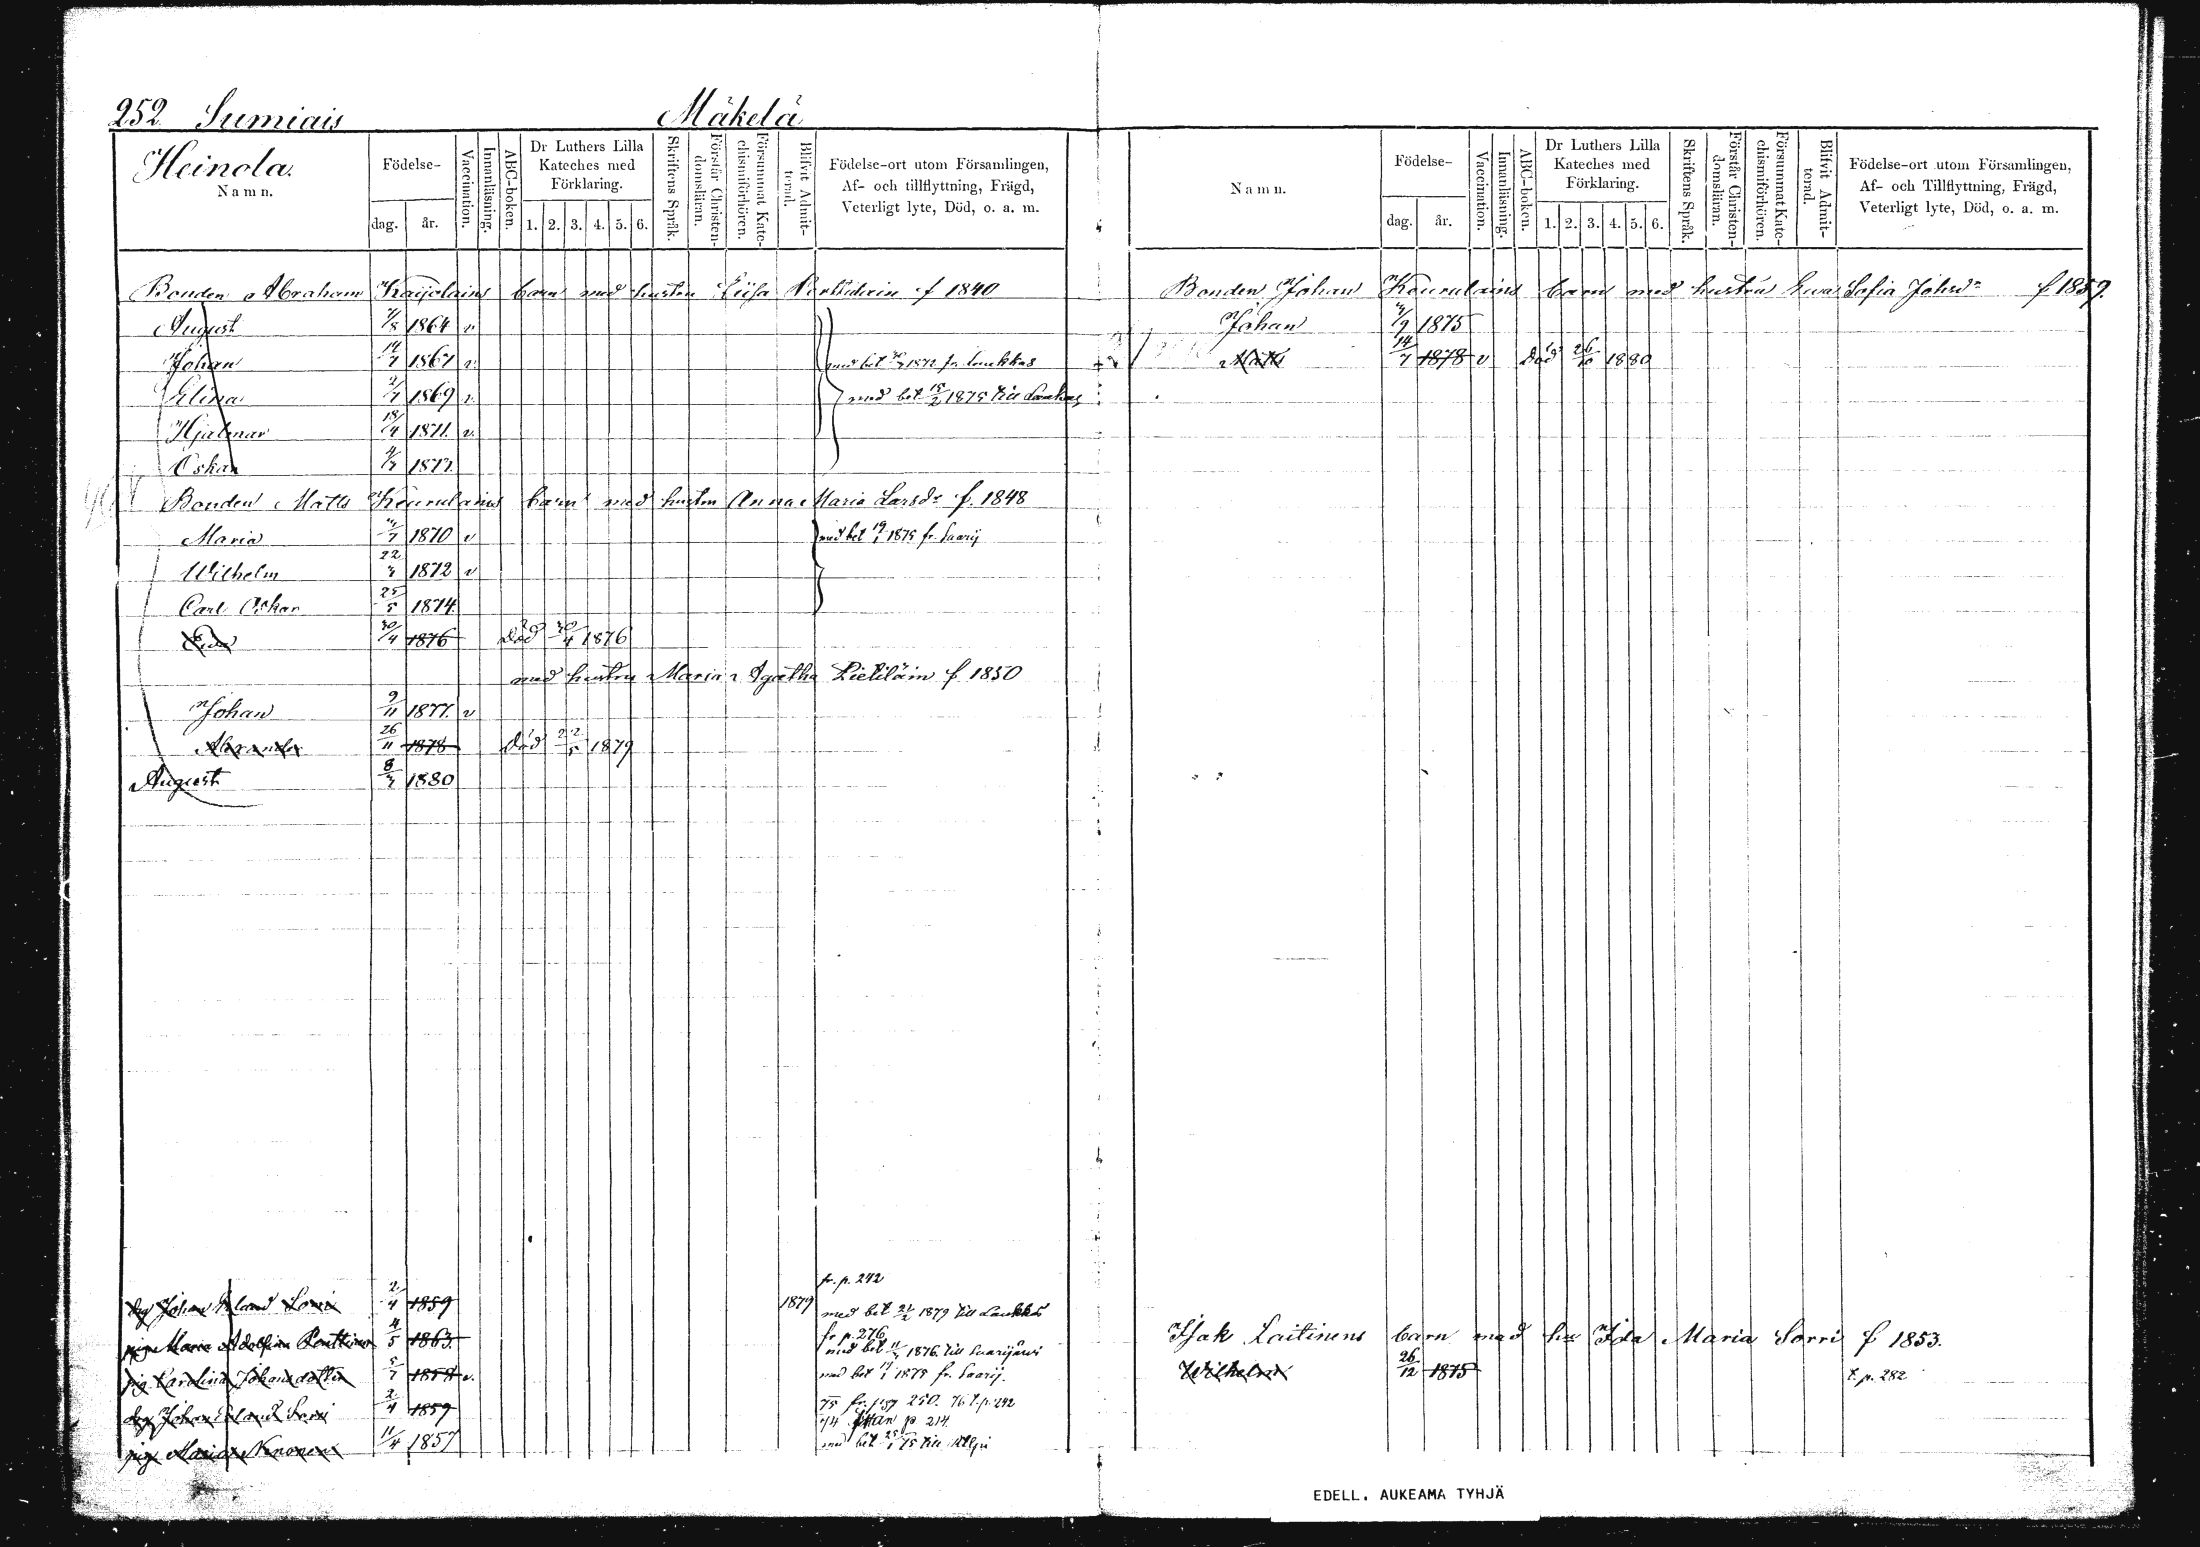 252 Sumiais Mäkelä
Heinola.
Namn.
Födelse-
dag. år.
Vaccination.
Innanläsning.
ABC-boken.
Dr Luthers Lilla
Kateches med
Förklaring.
1. 2. 3. 4. 5. 6.
Skriftens Språk.
Förstår Christen-
domsläran.
Försummat Kate-
chismiförhören.
Blifvit Admit-
terad.
Födelse-ort utom Församlingen,
Af- och tillflyttning, Frägd,
Veterligt lyte, Död, o. a. m.
Bonden Abraham barn med hustru f 1840
August 1864 v
Johan 1867 v. med bet 1872 fr. Laukkas
Elina 1869 v. med bet 15/2 1875 till Laukas
Hjalmar 18/4 1871. v.
Oskar
Bonden Matts Kourulains barn med hustru Anna Maria Larsdr f. 1848
Maria 1870 v med bet 19/1 1875 fr. Saarij
Wilhelm 22 1872 v
Carl Oskar 25/5 1874.
30/4 1876 Död 30/4 1876
med hustru Maria Agatha f 1850
Johan 9/11 1877. v
26/11 1878 Död 22/5 1879
August 8 1880
fr. p. 242
drg Johan Erland Sorri 2/4 1859 1879 med bet 21/2 1879 till Laukkas
fr p. 276
pig Maria Adolfina Penttinen 4/5 1863. med bet 1876. till Saarijärvi
pig Carolina Johansdotter 1858 v. med bet 1875 fr. Saarij.
75 fr. p. 250. 76 t. p. 242
drg Johan Erland Sorri 2/4 1859
74 från p 214.
pig Maria Nenonen 11/4 1857 med bet 75 till
Namn.
Födelse-
dag. år.
Vaccination.
Innanläsning.
ABC-boken.
Dr Luthers Lilla
Kateches med
Förklaring.
1. 2. 3. 4. 5. 6.
Skriftens Språk.
Förstår Christen-
domsläran.
Försummat Kate-
chismiförhören.
Blifvit Admit-
terad.
Födelse-ort utom Församlingen,
Af- och Tillflyttning, Frägd,
Veterligt lyte, Död, o. a. m.
Bonden Johan Kourulains barn med hustru Eva Sofia Johsdr f 1859.
Johan 1875
Matts 14/7 1878 v Död 26/10 1880
Isak Laitinens barn med hu Ida Maria Sorri f 1853.
Wilhelm 26/12 1875 t. p. 282
EDELL. AUKEAMA TYHJÄ